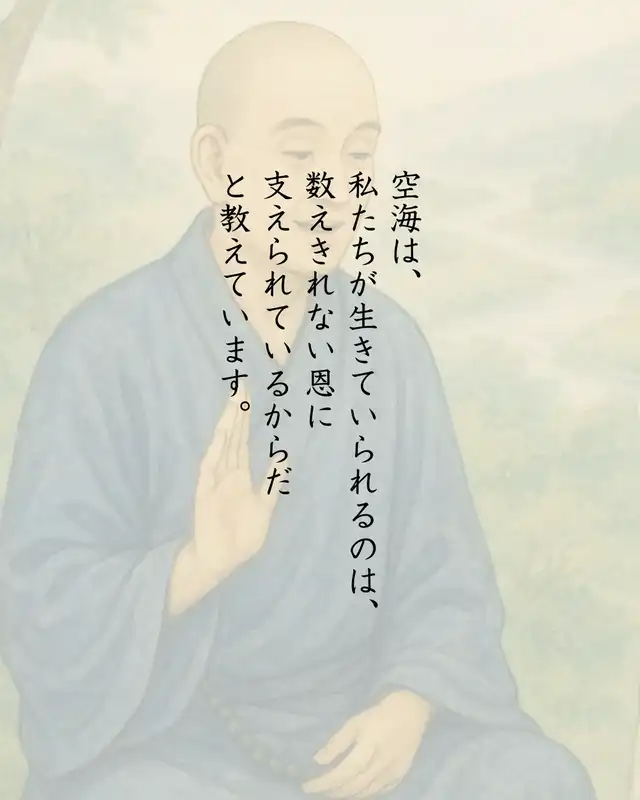 空海は、
私たちが生きていられるのは、
数えきれない恩に
支えられているからだ
と教えています。